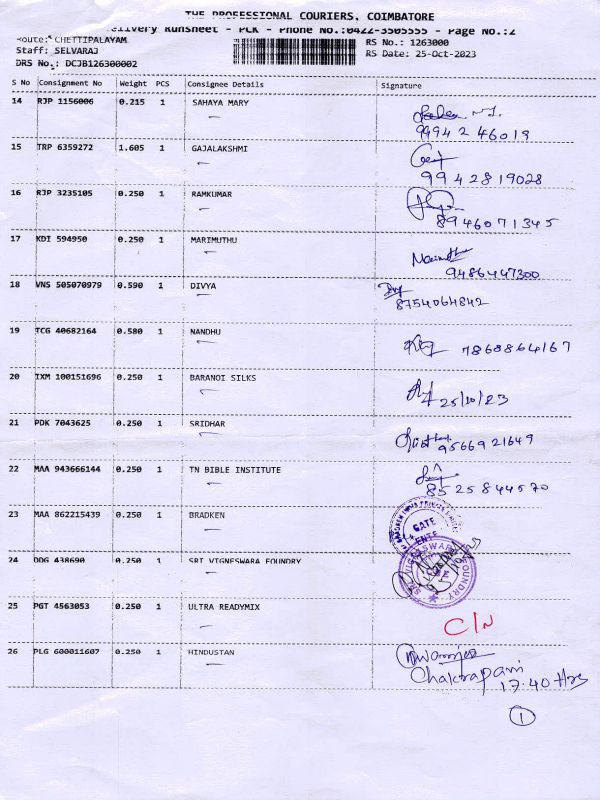 THE PROFESSIONAL COURIERS, COIMBATORE
Delivery Runsheet - PCK - Phone No.:0422-3505555 - Page No.:2
Route: CHETTIPALAYAM
Staff: SELVARAJ
DRS No.: DCJB126300002
RS No.: 1263000
RS Date: 25-Oct-2023
S No Consignment No Weight PCS Consignee Details Signature
14 RJP 1156006 0.215 1 SAHAYA MARY
99942 46019
15 TRP 6359272 1.605 1 GAJALAKSHMI
99 42819028
16 RJP 3235105 0.250 1 RAMKUMAR
8946071345
17 KDI 594950 0.250 1 MARIMUTHU
9486447300
18 VNS 505070979 0.590 1 DIVYA
8754064842
19 TCG 40682164 0.580 1 NANDHU
7868864167
20 IXM 100151696 0.250 1 BARANOI SILKS
25/10/23
21 PDK 7043625 0.250 1 SRIDHAR
9566921649
22 MAA 943666144 0.250 1 TN BIBLE INSTITUTE
8525844570
23 MAA 862215439 0.250 1 BRADKEN
GATE
24 DDG 438690 0.250 1 SRI VIGNESWARA FOUNDRY
25 PGT 4563053 0.250 1 ULTRA READYMIX
C/N
26 PLG 600011607 0.250 1 HINDUSTAN
Chakrapani
17.40 Hrs
1